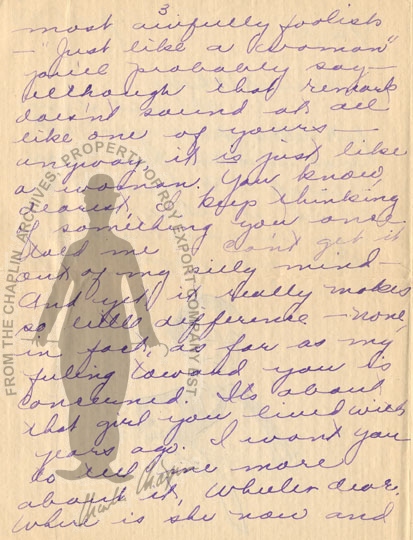 3
most awfully foolish
— "Just like a woman"
you'll probably say —
although that remark
doesn't sound at all
like one of yours —
anyway it is just like
a woman. You know,
dearest, I keep thinking
of something you once
told me I can't get it
out of my silly mind —
And yet it really makes
so little difference — none,
in fact, as far as my
feeling toward you is
concerned. It's about
that girl you lived with
years ago. I want you
to tell me more
about it, Wheeler dear.
Where is she now and
FROM THE CHAPLIN ARCHIVES. PROPERTY OF ROY EXPORT COMPANY EST.
Charlie Chaplin